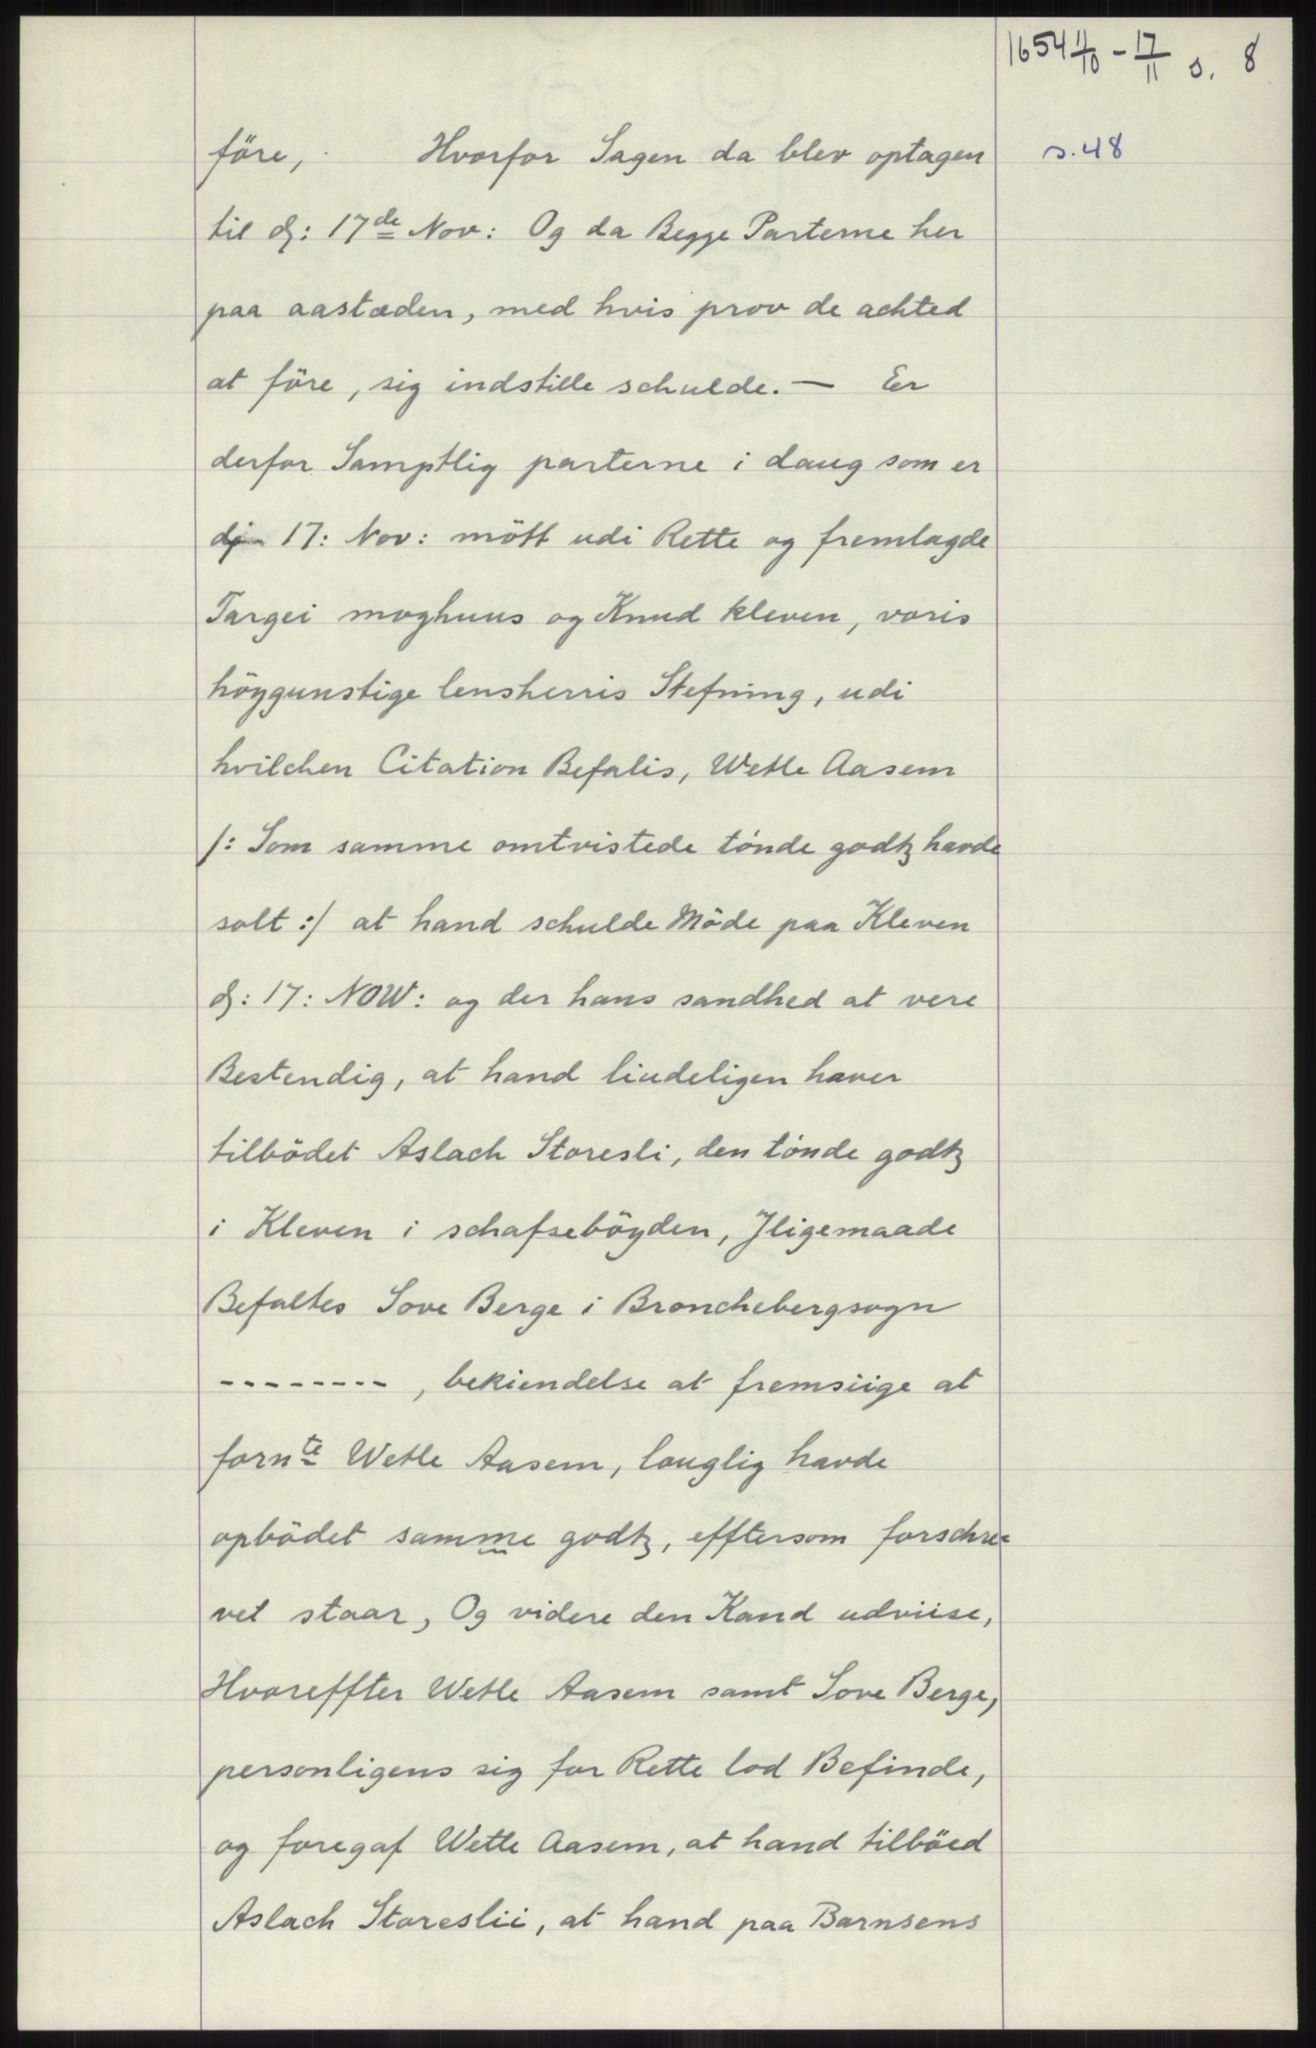 1654 11/10 - 17/11 s. 8
s. 48
före, Hvorfor Sagen da blev optagen
til dj: 17de Nov: Og da Begge Parterne her
paa aastæden, med hvis prov de achted
at före, sig indstille schulde. — Er
derfor Samptlig parterne i daug som er
dj 17: Nov: mött udi Rette og fremlagde
Targei moghuus og Knud kleven, voris
höygunstige lensherris Stefning, udi
hvilchen Citation Befalis, Wetle Aasem
/: Som samme omtvistede tönde godtz havde
solt :/ at hand schulde Möde paa Kleven
dj: 17: NOW: og der hans sandhed at vere
Bestendig, at hand liudeligen haver
tilbödet Aslach Storesli, den tönde godtz
i Kleven i schafseböyden, Jligemaade
Befaltes Sove Berge i Bronchebergsogn
--------, bekiendelse at fremsiige at
fornte Wetle Aasem, louglig havde
opbödet samme godtz, efftersom forschre-
vet staar, Og videre den Kand udviise,
Hvoreffter Wetle Aasem samt Sove Berge,
personligens sig for Rette lod Befinde,
og foregaf Wetle Aasem, at hand tilböed
Aslach Storeslii, at hand paa Barnsens